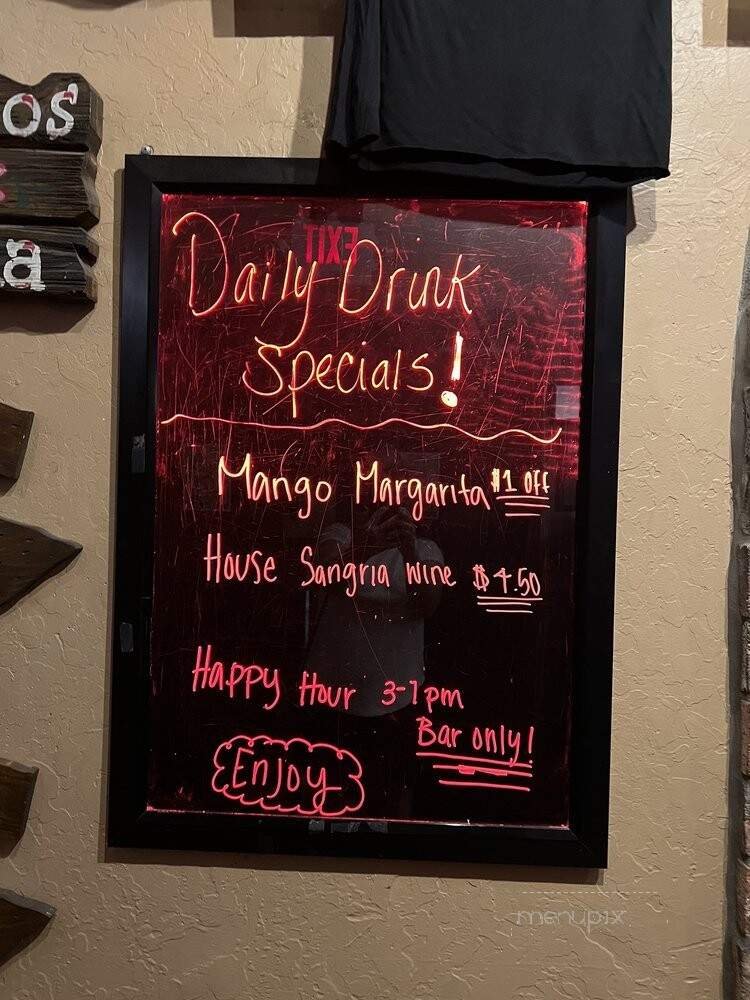 os
a
EXIT
Daily Drink
Specials!
Mango Margarita $1 off
House Sangria wine $4.50
Happy Hour 3-7pm
Bar only!
Enjoy
menupix